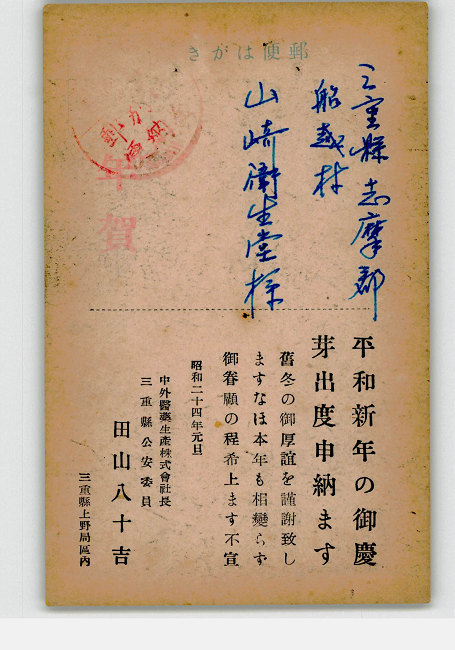 郵便はがき
年賀
三重縣志摩郡
船越村
山崎衛生堂様
平和新年の御慶
芽出度申納ます
舊冬の御厚誼を謹謝致し
ますなほ本年も相變らず
御眷顧の程希上ます不宣
昭和二十四年元旦
中外醫藥生產株式會社長
三重縣公安委員
田山八十吉
三重縣上野局區內